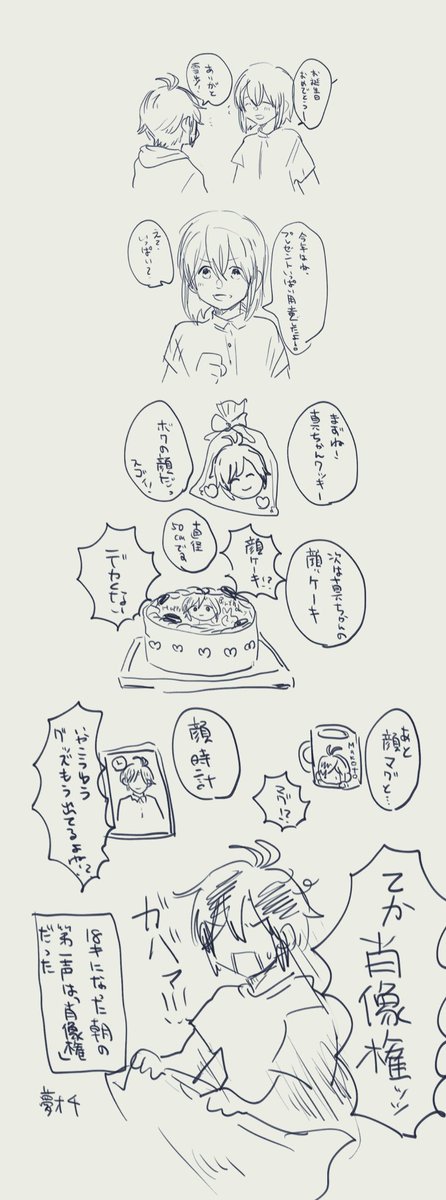 お誕生日
おめでとうー
ありがと
雪歩!
今年はね、
プレゼントいっぱい用意したよ。
えっ、
いっぱい?
まずね!
真ちゃんクッキー
ボクの顔だっ
スゴイ!
次は真ちゃんの
顔ケーキ
顔ケーキ!?
直径
50cmです
デカくない
あと
顔マグと…
MAKOTO
マグ!?
顔時計
いやこうゆう
グッズもう出てるよね!?
てか肖像権ッッ
ガバァ!!!
18才になった朝の
第一声は、「肖像権」
だった
夢オチ